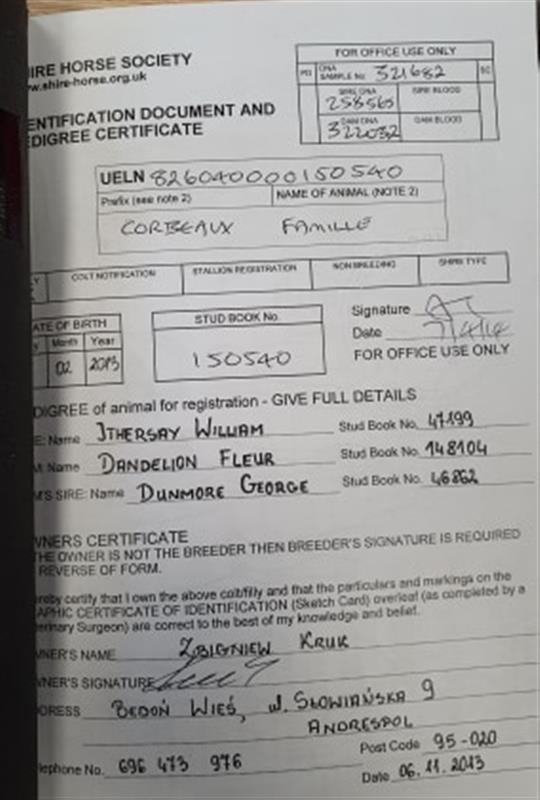 HIRE HORSE SOCIETY
w.shire-horse.org.uk
ENTIFICATION DOCUMENT AND
DIGREE CERTIFICATE
FOR OFFICE USE ONLY
DNA SAMPLE No 321682
SIRE DNA 258565 SIRE BLOOD
DAM DNA 322032 DAM BLOOD
UELN 826040000150540
Prefix (see note 2) NAME OF ANIMAL (NOTE 2)
CORBEAUX FAMILLE
COLT NOTIFICATION STALLION REGISTRATION NON BREEDING SHIRE TYPE
ATE OF BIRTH
Month Year
02 2013
STUD BOOK No.
150540
Signature
Date 7/4/14
FOR OFFICE USE ONLY
DIGREE of animal for registration - GIVE FULL DETAILS
E: Name ITHERSAY WILLIAM Stud Book No. 47199
M: Name DANDELION FLEUR Stud Book No. 148104
M'S SIRE: Name DUNMORE GEORGE Stud Book No. 46862
WNERS CERTIFICATE
THE OWNER IS NOT THE BREEDER THEN BREEDER'S SIGNATURE IS REQUIRED
REVERSE OF FORM.
ereby certify that I own the above colt/filly and that the particulars and markings on the
APHIC CERTIFICATE OF IDENTIFICATION (Sketch Card) overleaf (as completed by a
erinary Surgeon) are correct to the best of my knowledge and belief.
WNER'S NAME ZBIGNIEW KRUK
WNER'S SIGNATURE
DRESS BEDOŃ WIEŚ, ul. SŁOWIAŃSKA 9
ANDRESPOL
Post Code 95-020
lephone No. 696 473 976
Date 06.11.2013